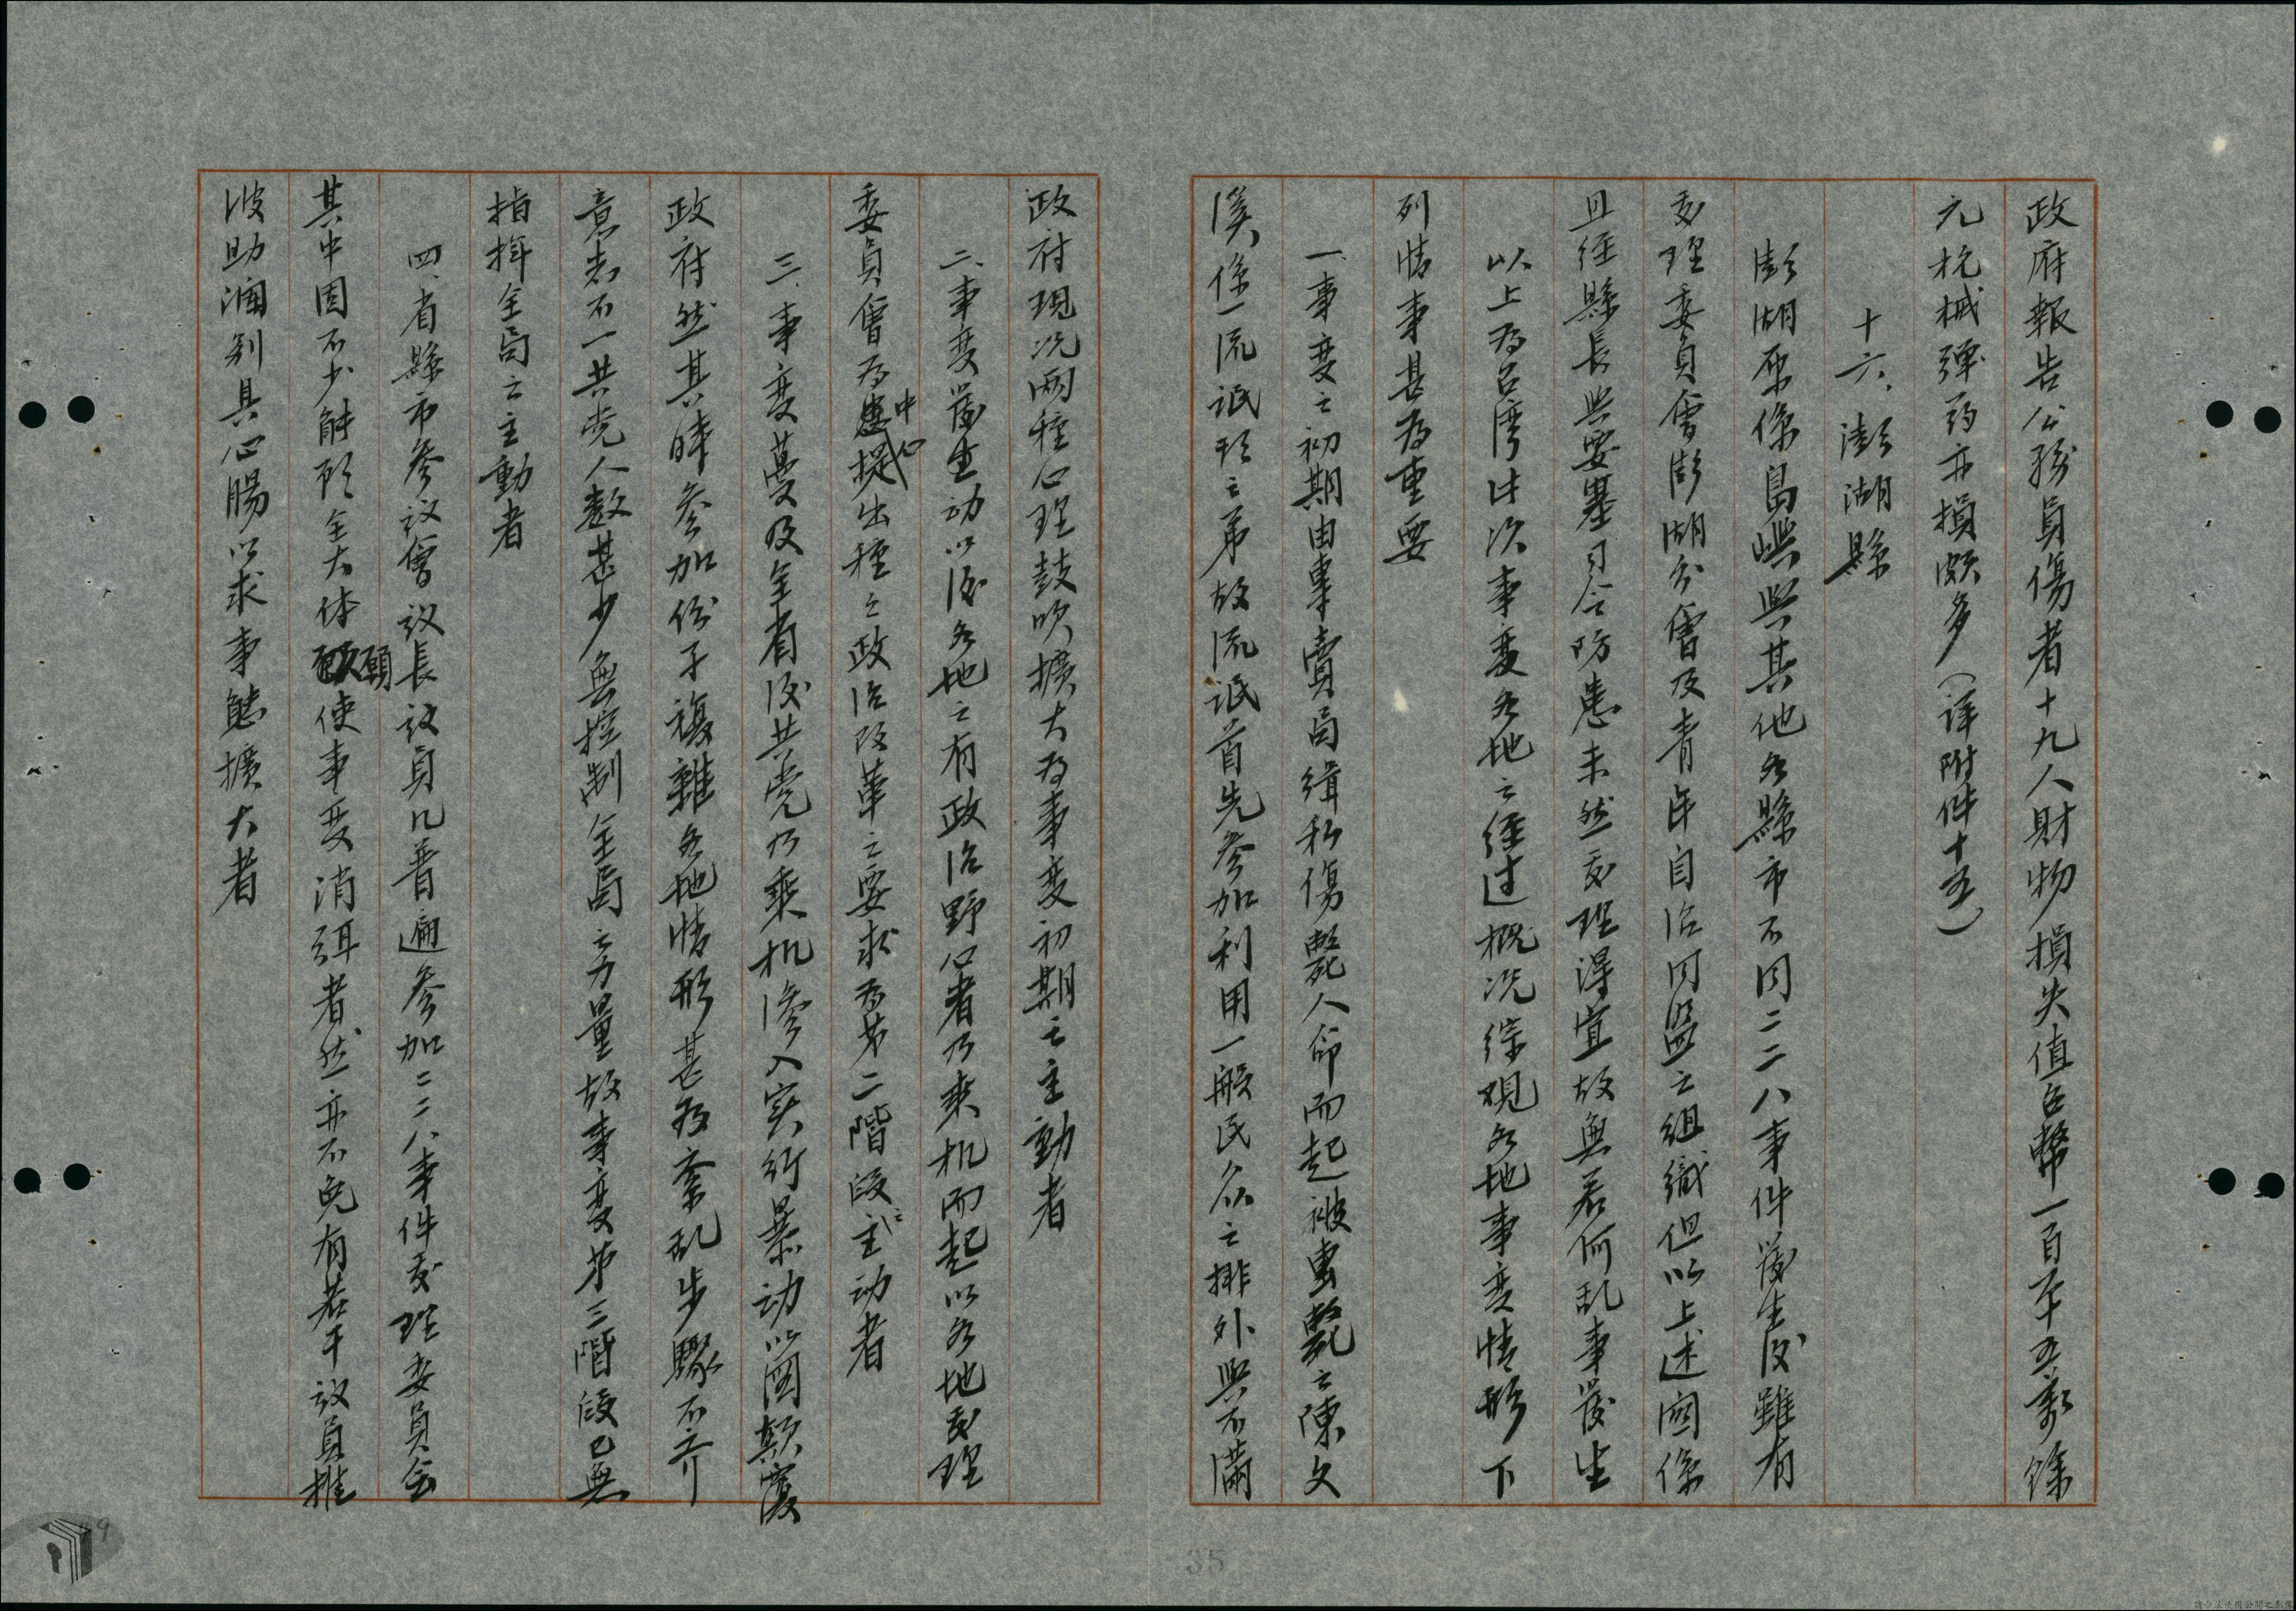 政府報告公務員傷者十九人財物損失值台幣一百五十五萬餘
元枪械彈药亦損頗多（详附件十五）
十六、澎湖縣
澎湖原係島嶼與其他各縣市不同二二八事件發生後雖有
處理委員會澎湖分會及青年自治同盟之組織但以上述関係
且经縣長與要塞司令防患未然處理得宜故無若何乱事發生
以上为台湾此次事变各地之经过概况综观各地事变情形下
列情事甚为重要
一、事变之初期由專賣局缉私傷斃人命而起被擊斃之陳文
溪係一流氓頭之弟故流氓首先参加利用一般民众之排外與不滿
政府現况兩種心理鼓吹擴大为事变初期之主動者
二、事变發生动以後各地之有政治野心者乃乘机而起以各地處理
委員會为中心提出種之政治改革之要求为第二階段之主动者
三、事变蔓及全省後共党乃乘机滲入实行暴动以圖顛覆
政府然其時参加份子複雜各地情形甚为紊乱步驟不齐
意志不一共党人数甚少無控制全局之力量故事变第三階段已無
指揮全局之主動者
四、省縣市参议會议長议員几普遍参加二二八事件處理委員会
其中固不少能顾全大体願使事变消弭者然亦不免有若干议員推
波助瀾别具心腸以求事態擴大者
35